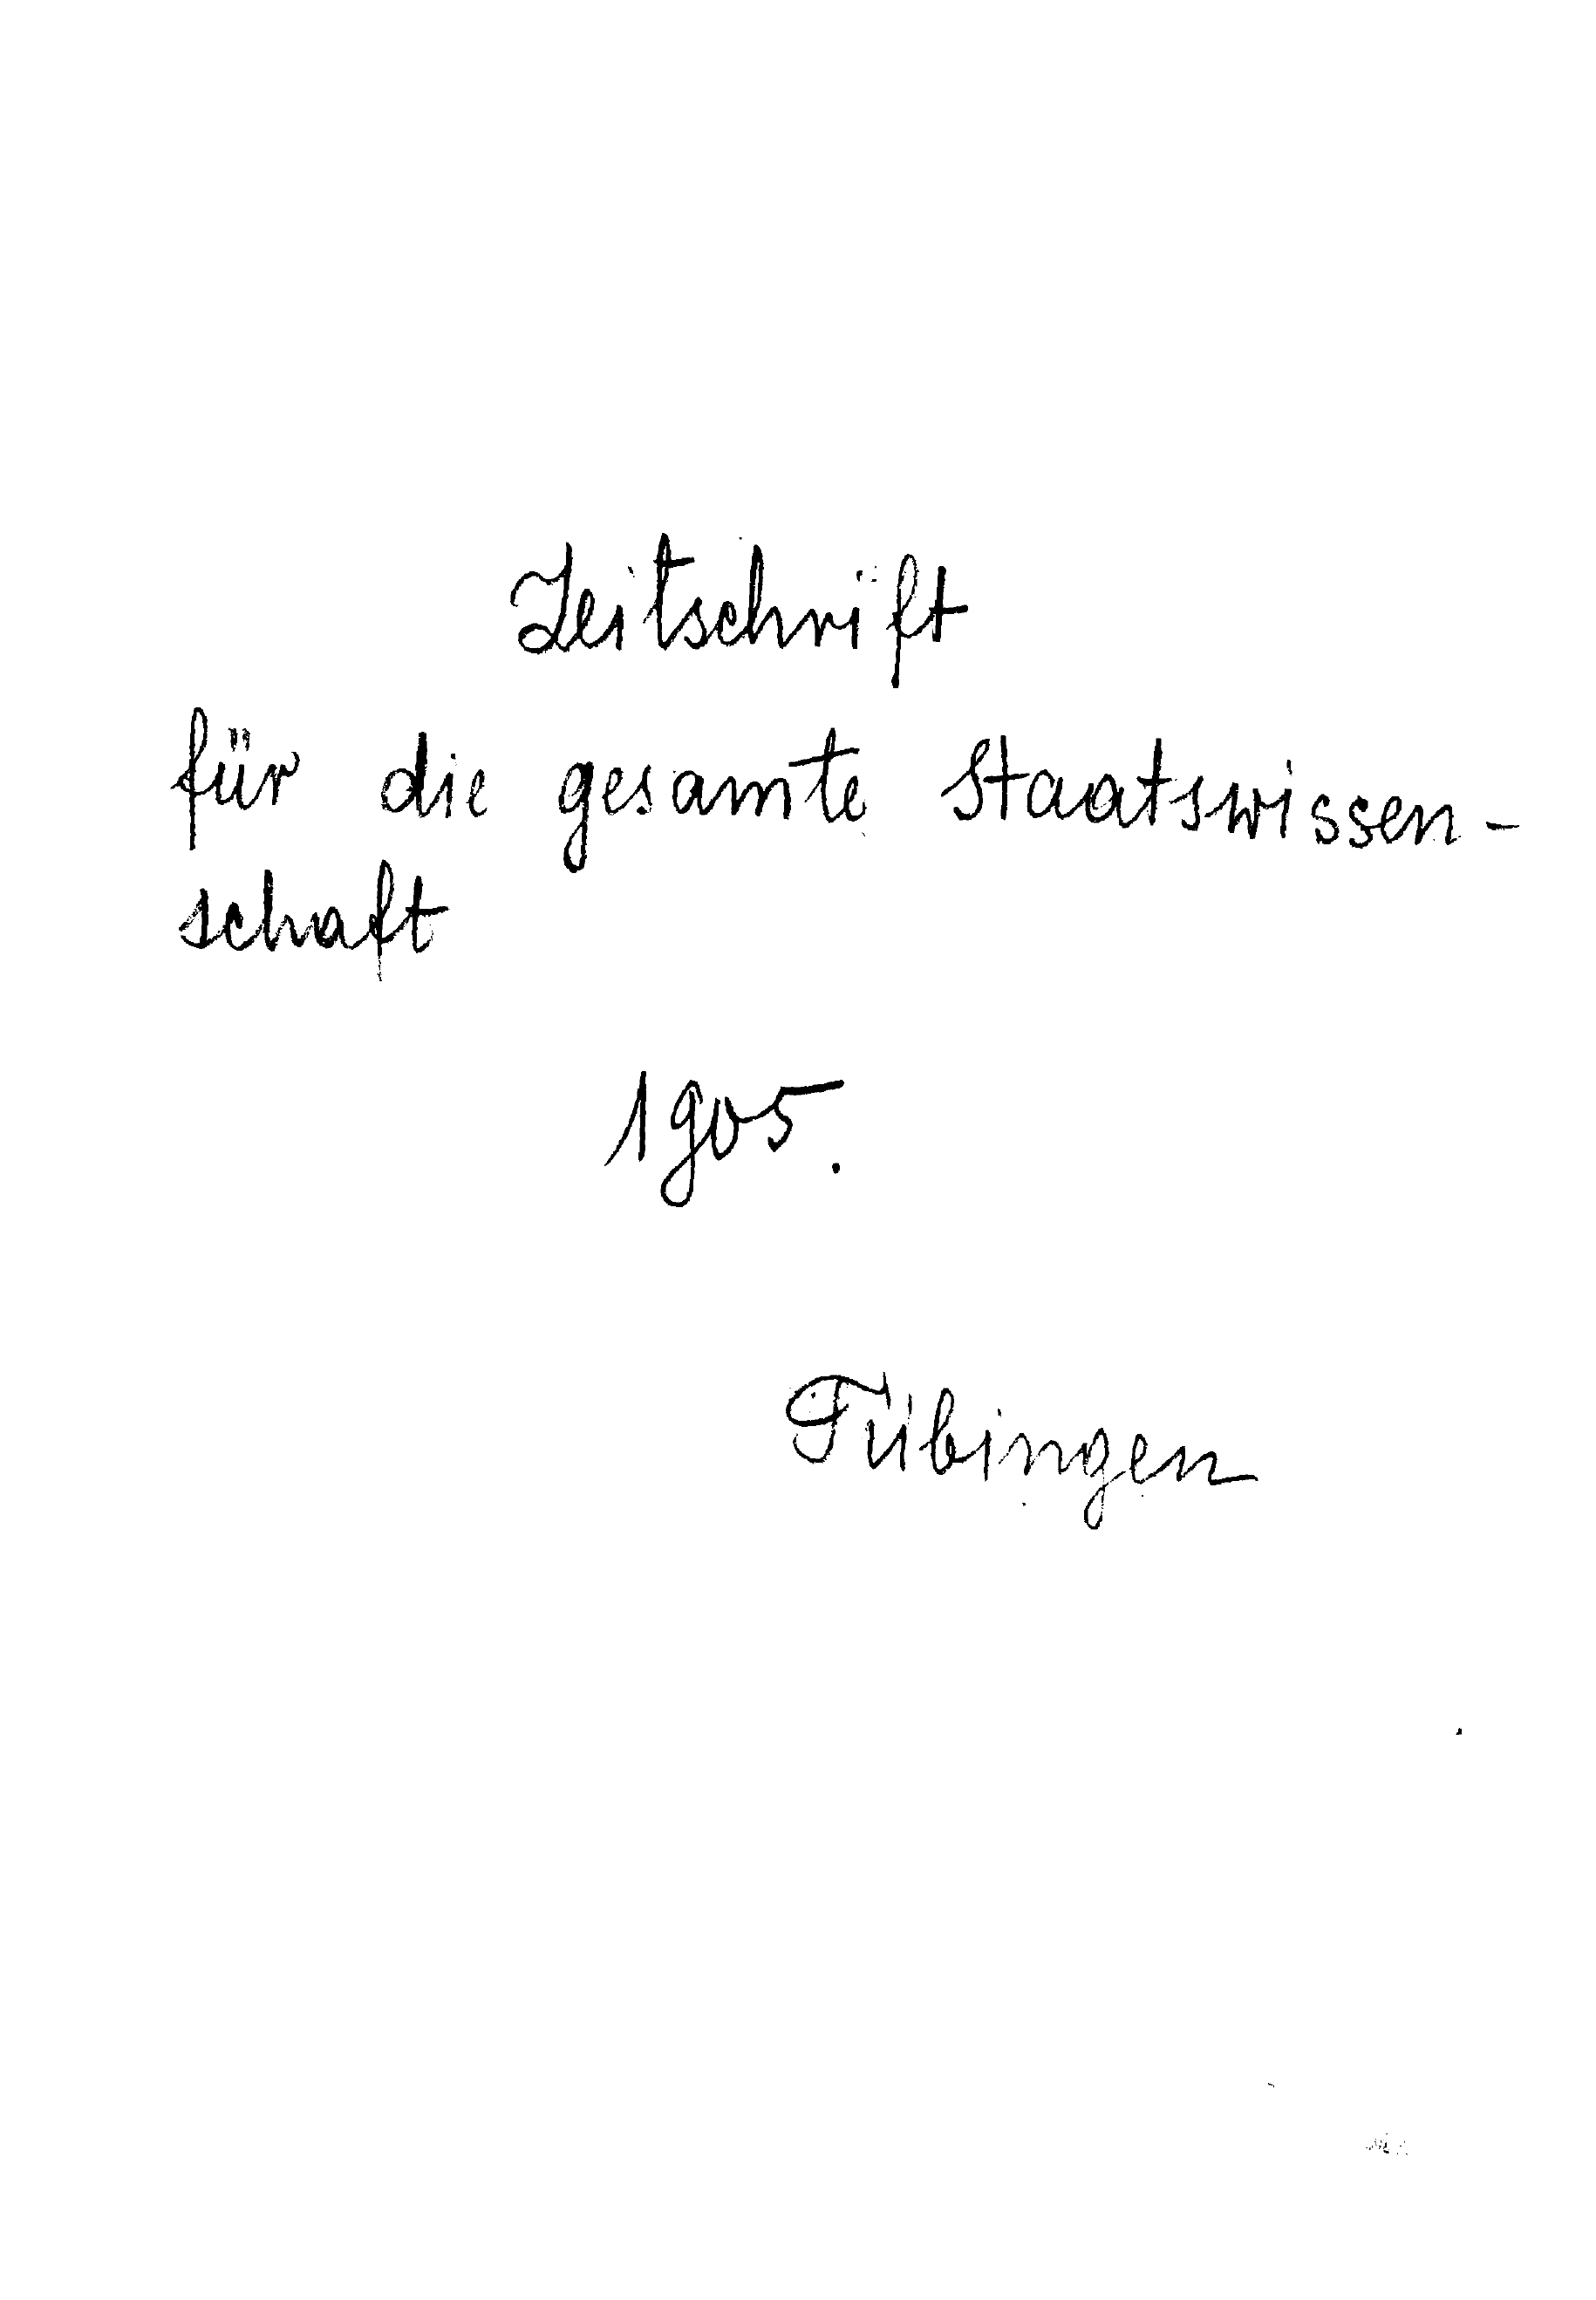 Zeitschrift
für die gesamte Staatswissen-
schaft
1905.
Tübingen